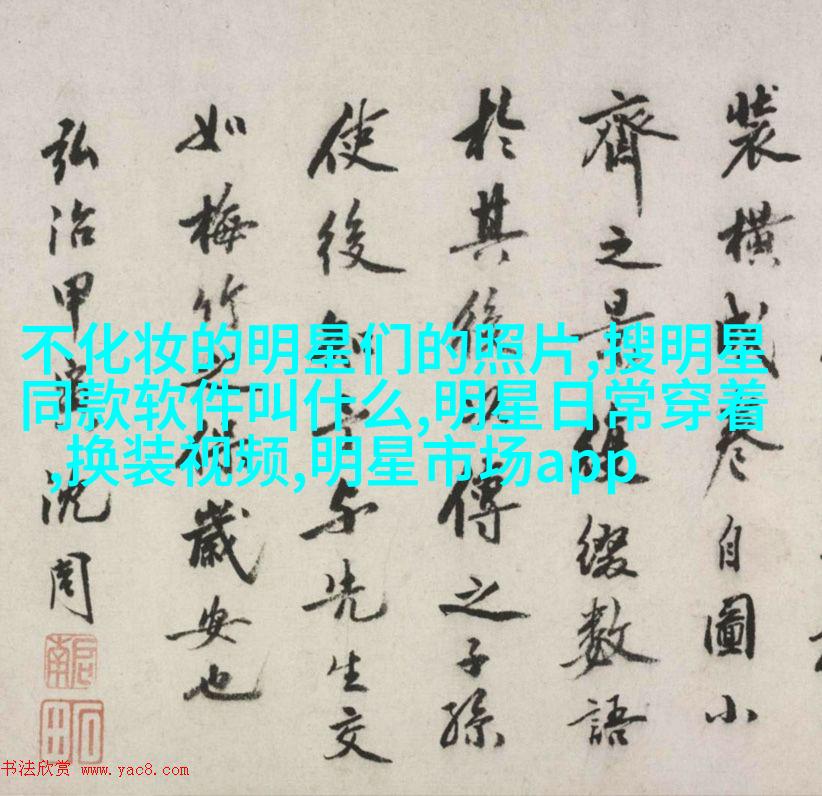 裝横成卷自圖小
齊之景綴數語
於其後傳之子孫
使後知吾与先生交
如梅竹之歲安也
弘治甲寅沈周
啟南
石田
不化妆的明星们的照片,搜明星
同款软件叫什么,明星日常穿着
,换装视频,明星市场app
书法欣赏 www.yac8.com